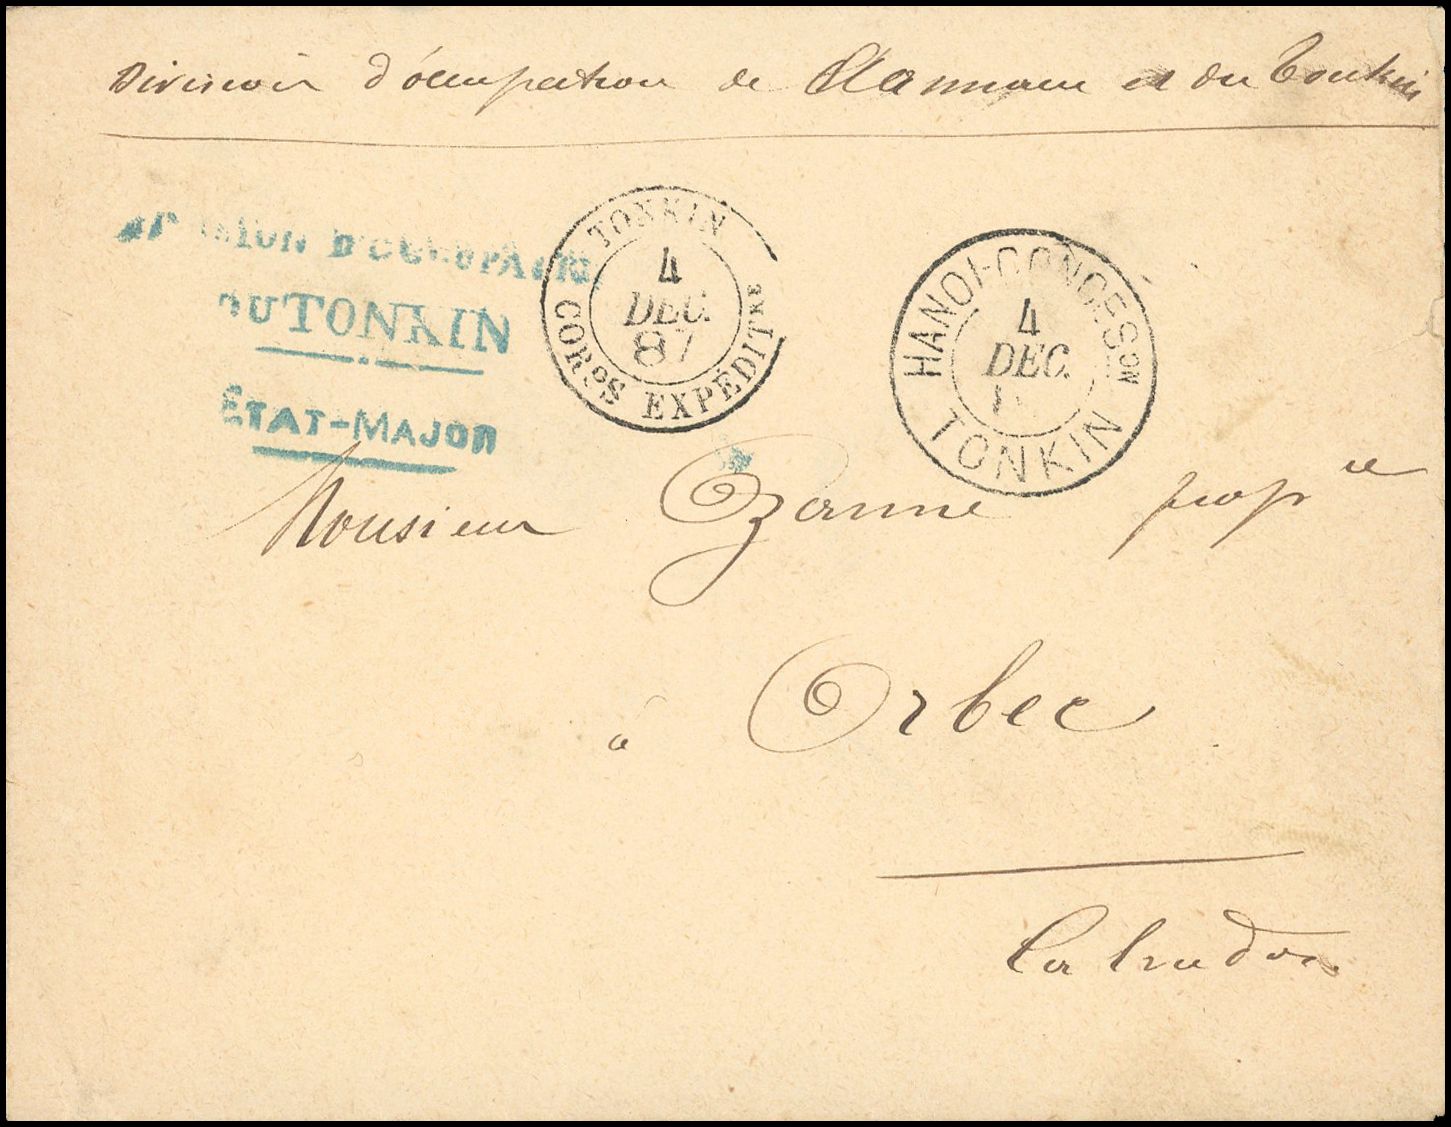 Division d'ocupation de l'Annam et du Tonkin
DIVISION D'OCCUPATION
DU TONKIN
ÉTAT-MAJOR
TONKIN
4
DEC.
87
CORPS EXPÉDITRE
HANOI-CONCESON
4
DEC.
TONKIN
Monsieur Ozanne propre
à Orbec
Calvados.